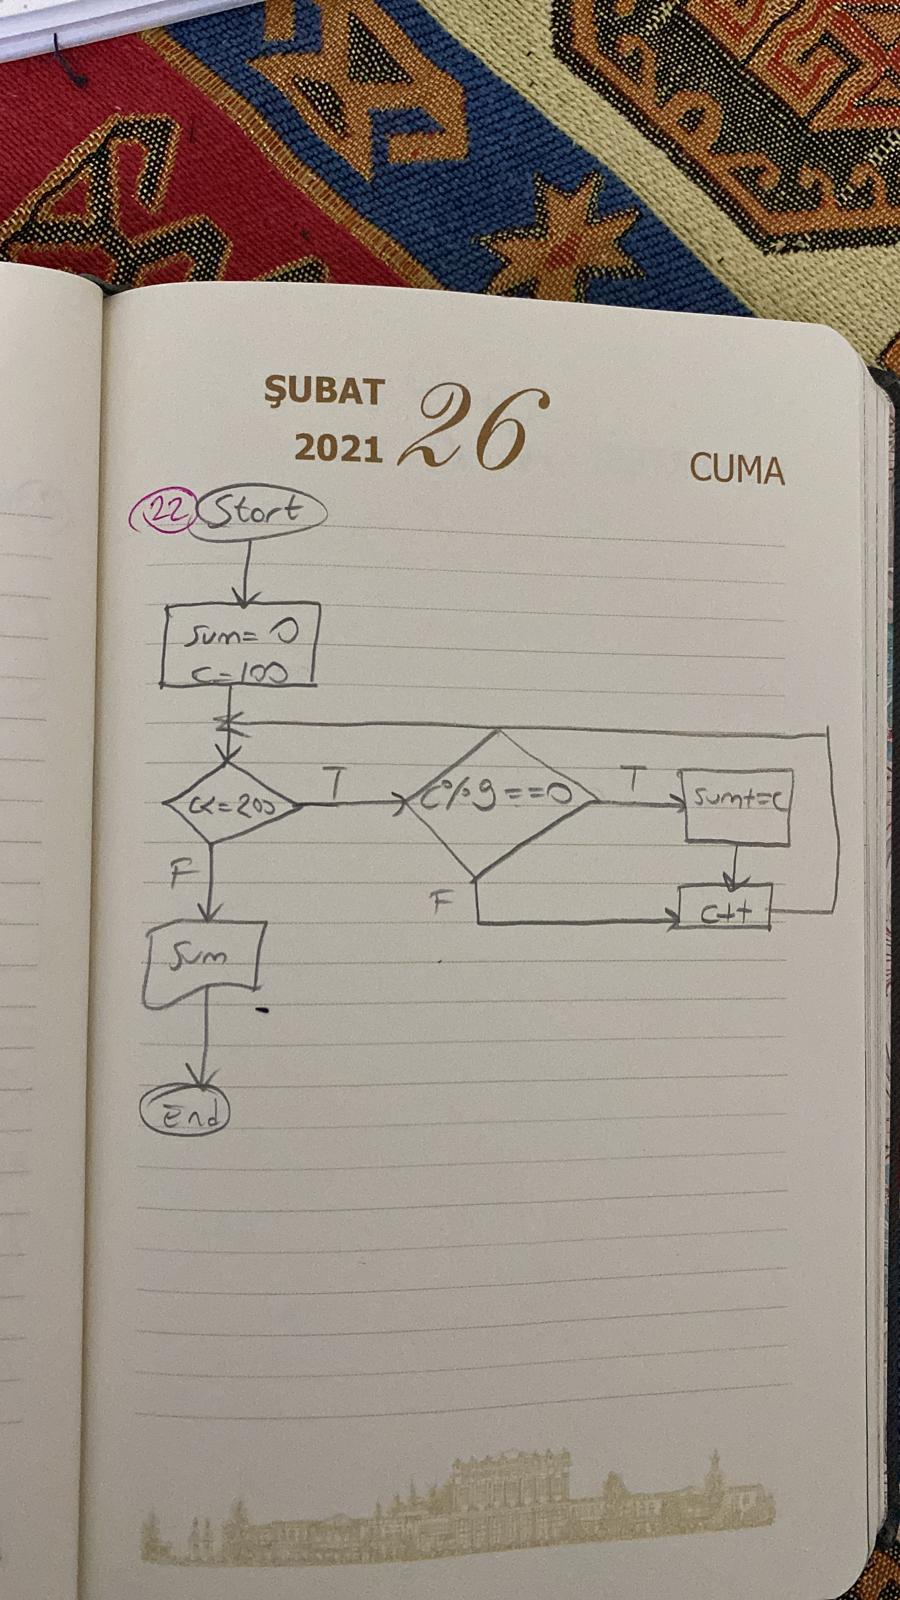 ŞUBAT 26
2021
CUMA
22 Start
sum= 0
c=100
c<=200
T
c%9==0
T
sum+=c
F
F
c++
sum
End